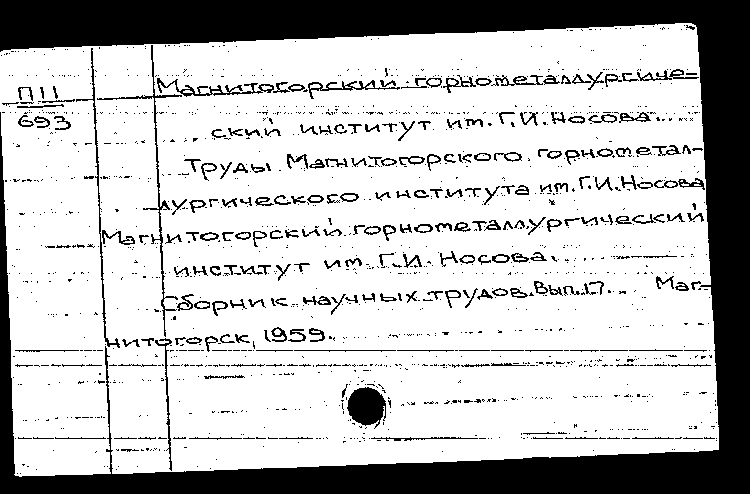 П11
693
Магнитогорский горнометаллургиче=
ский институт им. Г.И. Носова.
Труды Магнитогорского горнометал-
лургического института им. Г.И. Носова
Магнитогорский горнометаллургический
институт им. Г.И. Носова.
Сборник научных трудов. Вып. 17. Маг-
нитогорск, 1959.